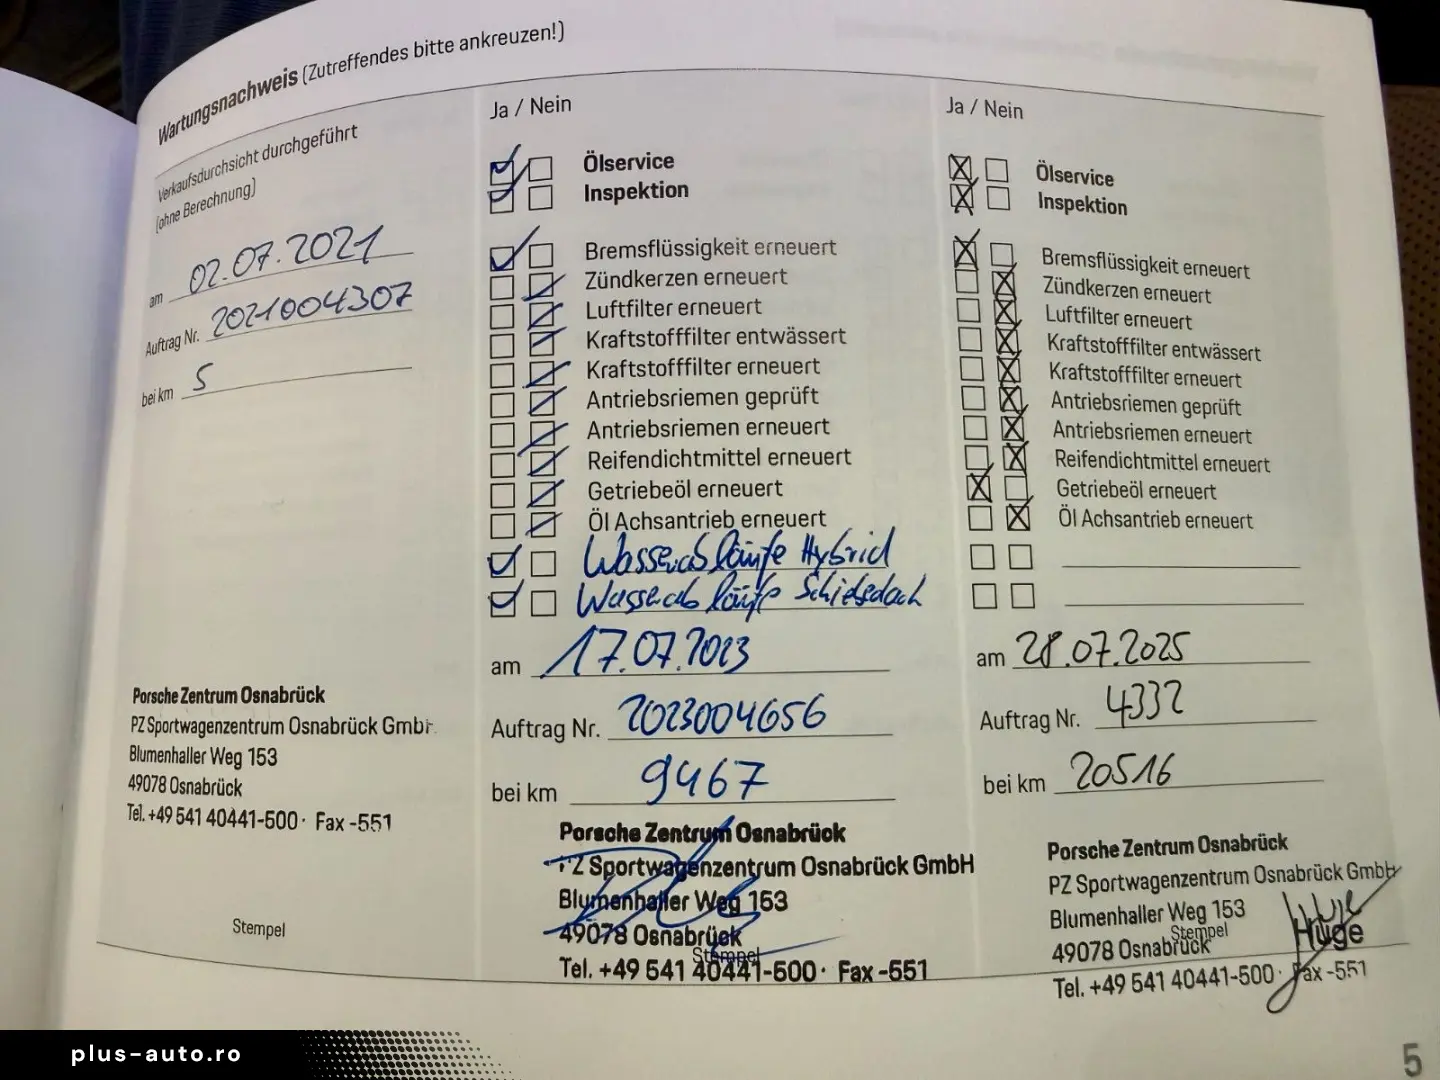 Wartungsnachweis (Zutreffendes bitte ankreuzen!)
Verkaufsdurchsicht durchgeführt
(ohne Berechnung)
am 02.07.2021
Auftrag Nr. 2021004307
bei km 5
Porsche Zentrum Osnabrück
PZ Sportwagenzentrum Osnabrück GmbH
Blumenhaller Weg 153
49078 Osnabrück
Tel. +49 541 40441-500 · Fax -551
Stempel
Ja / Nein
Ölservice
Inspektion
Bremsflüssigkeit erneuert
Zündkerzen erneuert
Luftfilter erneuert
Kraftstofffilter entwässert
Kraftstofffilter erneuert
Antriebsriemen geprüft
Antriebsriemen erneuert
Reifendichtmittel erneuert
Getriebeöl erneuert
Öl Achsantrieb erneuert
Wasserabläufe Hybrid
Wasserabläufe Schiebedach
am 17.07.2023
Auftrag Nr. 2023004656
bei km 9467
Porsche Zentrum Osnabrück
PZ Sportwagenzentrum Osnabrück GmbH
Blumenhaller Weg 153
49078 Osnabrück
Stempel
Tel. +49 541 40441-500 · Fax -551
Ja / Nein
Ölservice
Inspektion
Bremsflüssigkeit erneuert
Zündkerzen erneuert
Luftfilter erneuert
Kraftstofffilter entwässert
Kraftstofffilter erneuert
Antriebsriemen geprüft
Antriebsriemen erneuert
Reifendichtmittel erneuert
Getriebeöl erneuert
Öl Achsantrieb erneuert
am 28.07.2025
Auftrag Nr. 4332
bei km 20516
Porsche Zentrum Osnabrück
PZ Sportwagenzentrum Osnabrück GmbH
Blumenhaller Weg 153
Stempel
49078 Osnabrück
Huge
Tel. +49 541 40441-500 · Fax -551
5
plus-auto.ro